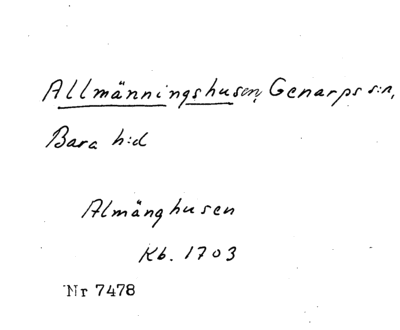 Allmänningshusen, Genarps s:n,
Bara h:d
Almänghusen
Kb. 1703
Nr 7478